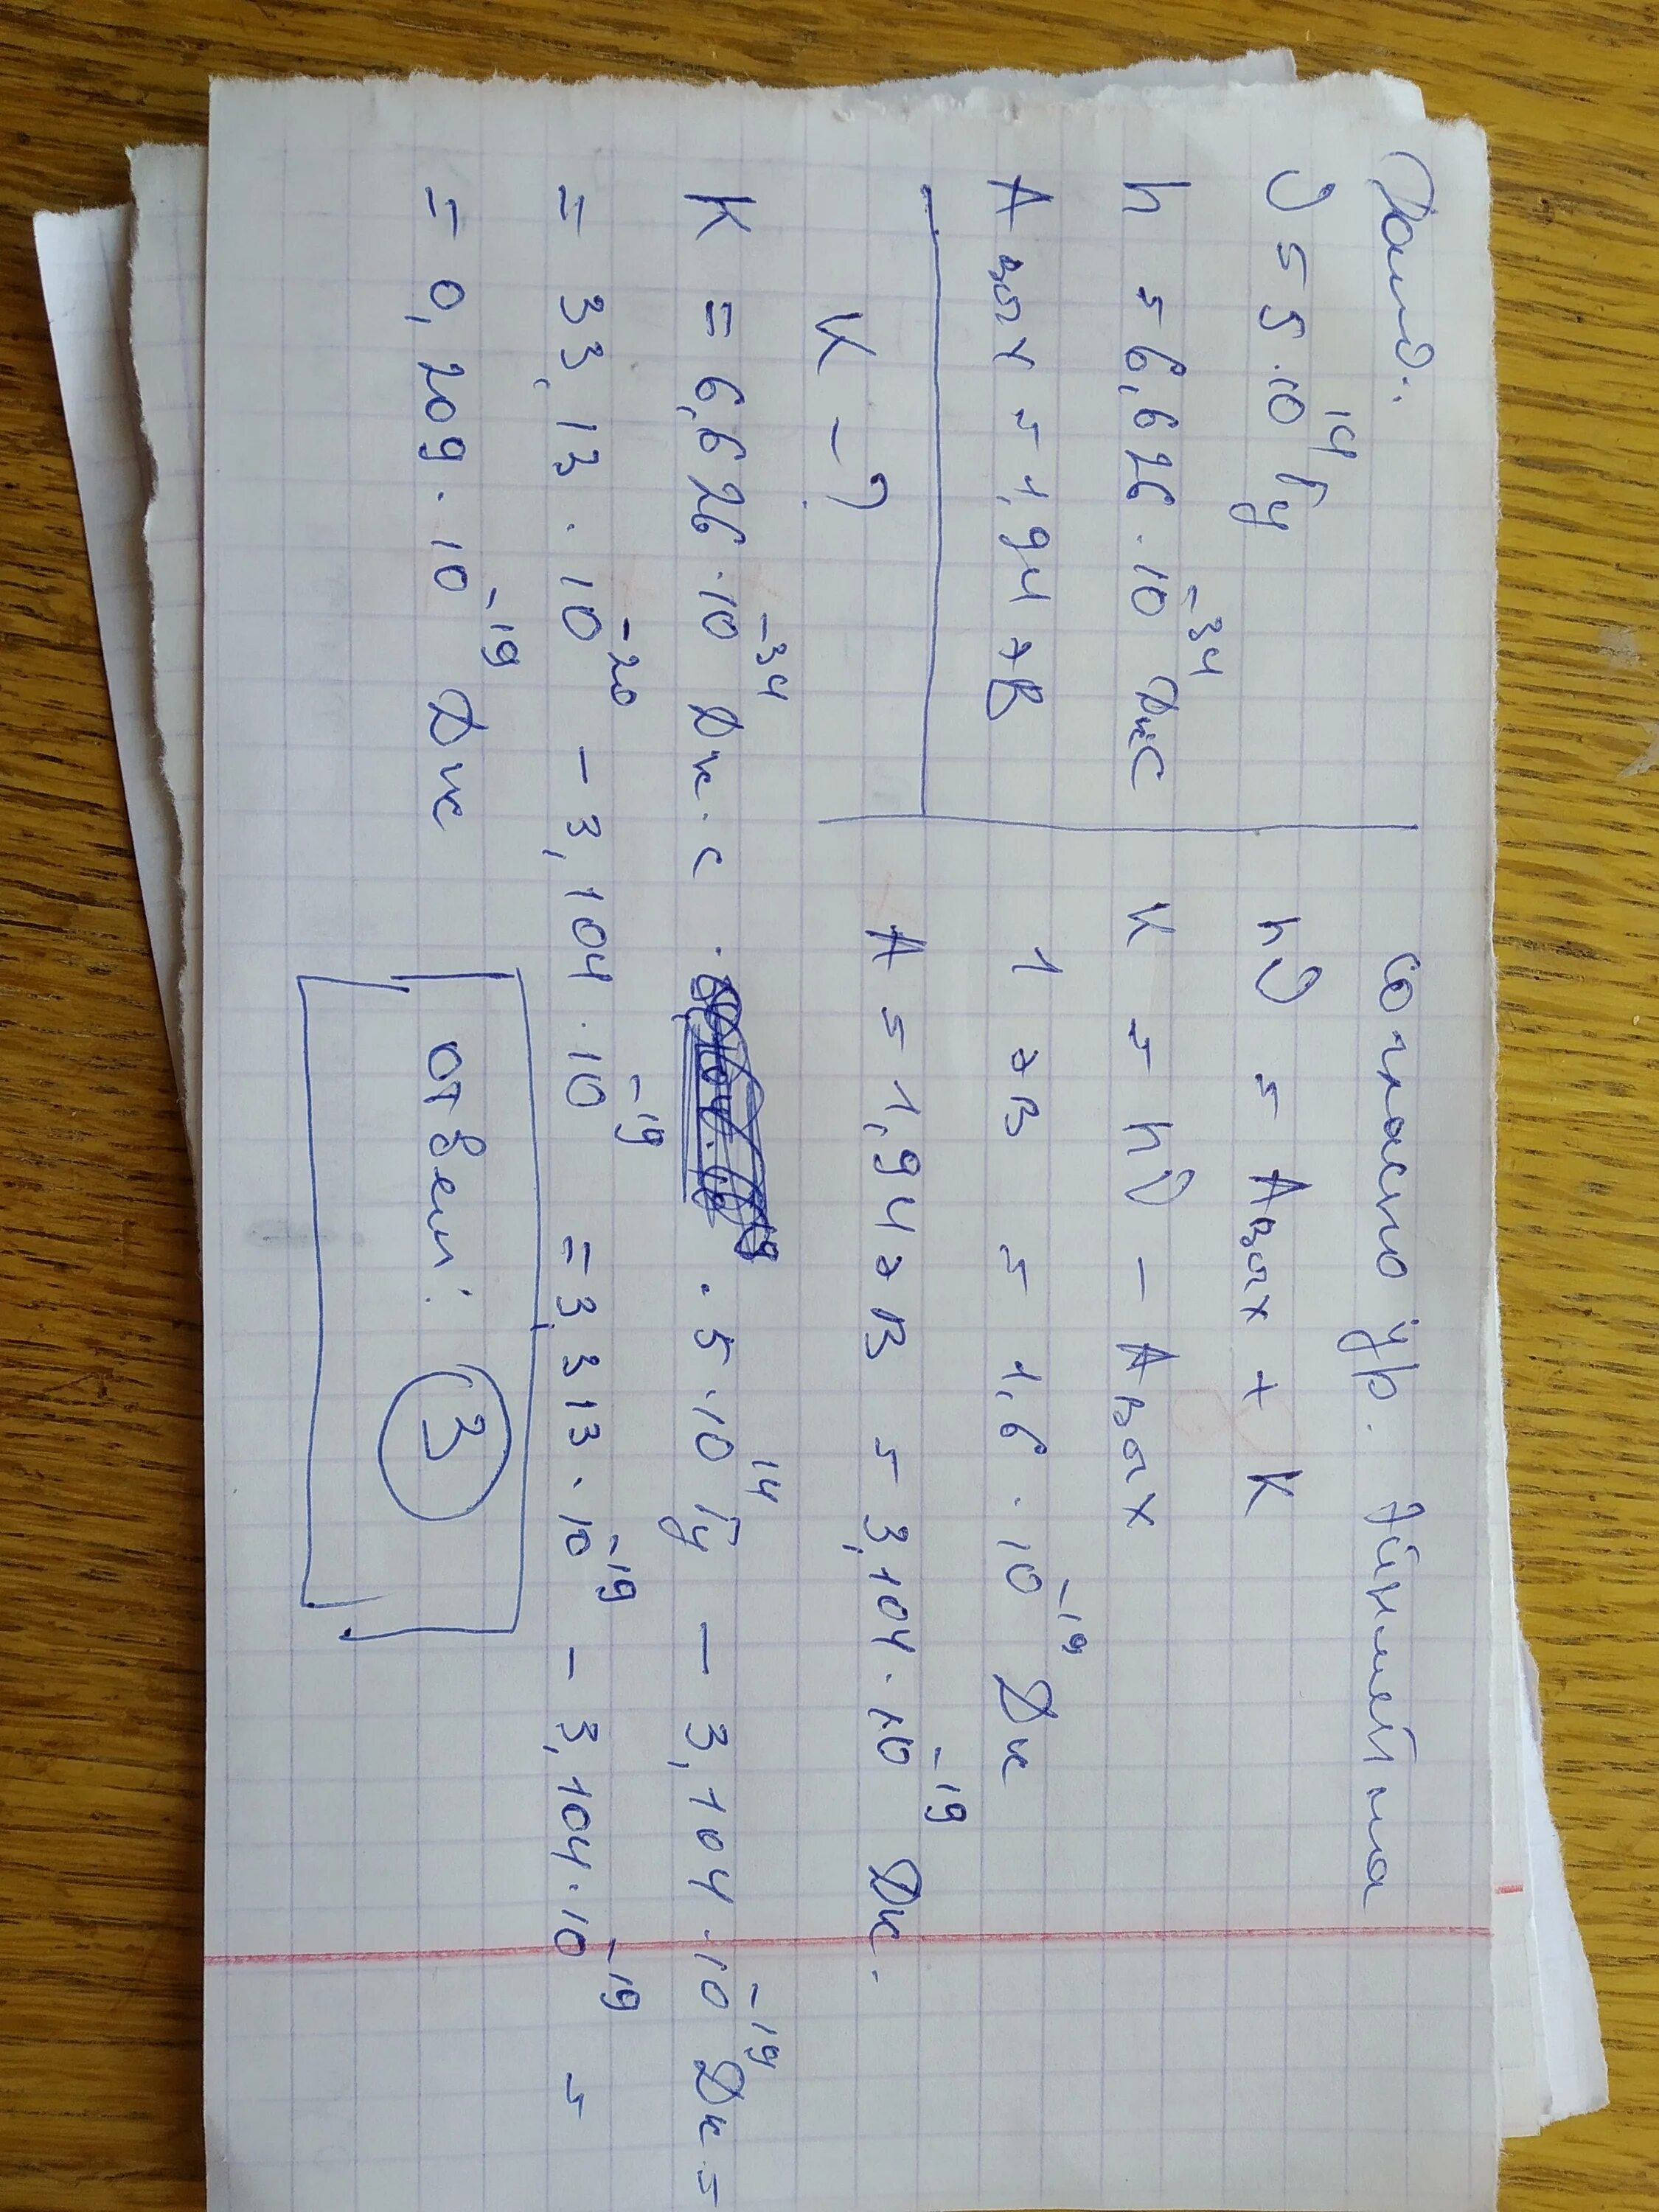 Дано:
ν = 5 · 10¹⁴ Гц
h = 6,626 · 10⁻³⁴ Джс
Aвых = 1,94 эВ
K - ?
согласно ур. Эйнштейна
hν = Aвых + K
K = hν - Aвых
1 эВ = 1,6 · 10⁻¹⁹ Дж
A = 1,94 эВ = 3,104 · 10⁻¹⁹ Дж.
K = 6,626 · 10⁻³⁴ Дж · с · · 5 · 10¹⁴ Гц - 3,104 · 10⁻¹⁹ Дж =
= 33,13 · 10⁻²⁰ - 3,104 · 10⁻¹⁹ = 3,313 · 10⁻¹⁹ - 3,104 · 10⁻¹⁹ =
= 0,209 · 10⁻¹⁹ Дж
ответ: 3